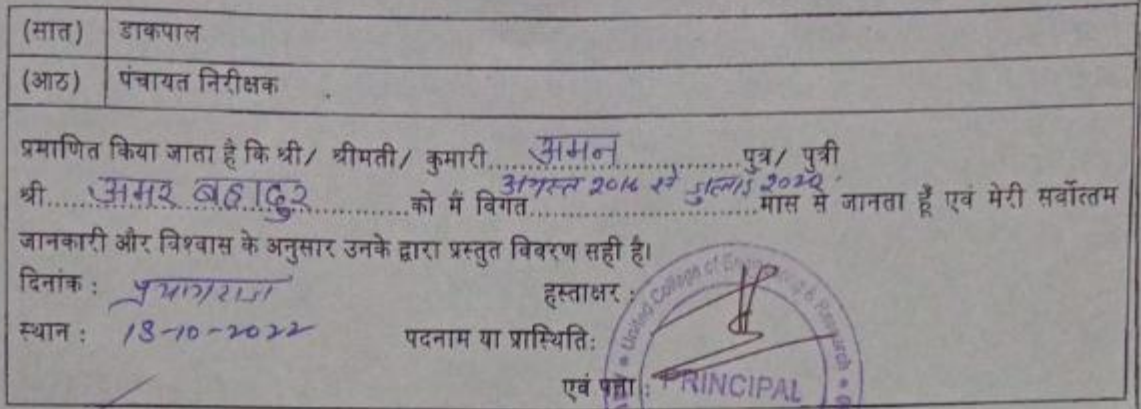 (सात) डाकपाल
(आठ) पंचायत निरीक्षक
प्रमाणित किया जाता है कि श्री/ श्रीमती/ कुमारी.....अमन..............पुत्र/ पुत्री
श्री.....अमर बहादुर............को मैं विगत अगस्त 2016 से जुलाई 2020 मास से जानता हूँ एवं मेरी सर्वोत्तम
जानकारी और विश्वास के अनुसार उनके द्वारा प्रस्तुत विवरण सही है।
दिनांक : प्रयागराज हस्ताक्षर :
स्थान : 18-10-2022 पदनाम या प्रास्थिति:
एवं पता :
United College of Engineering & Research
PRINCIPAL